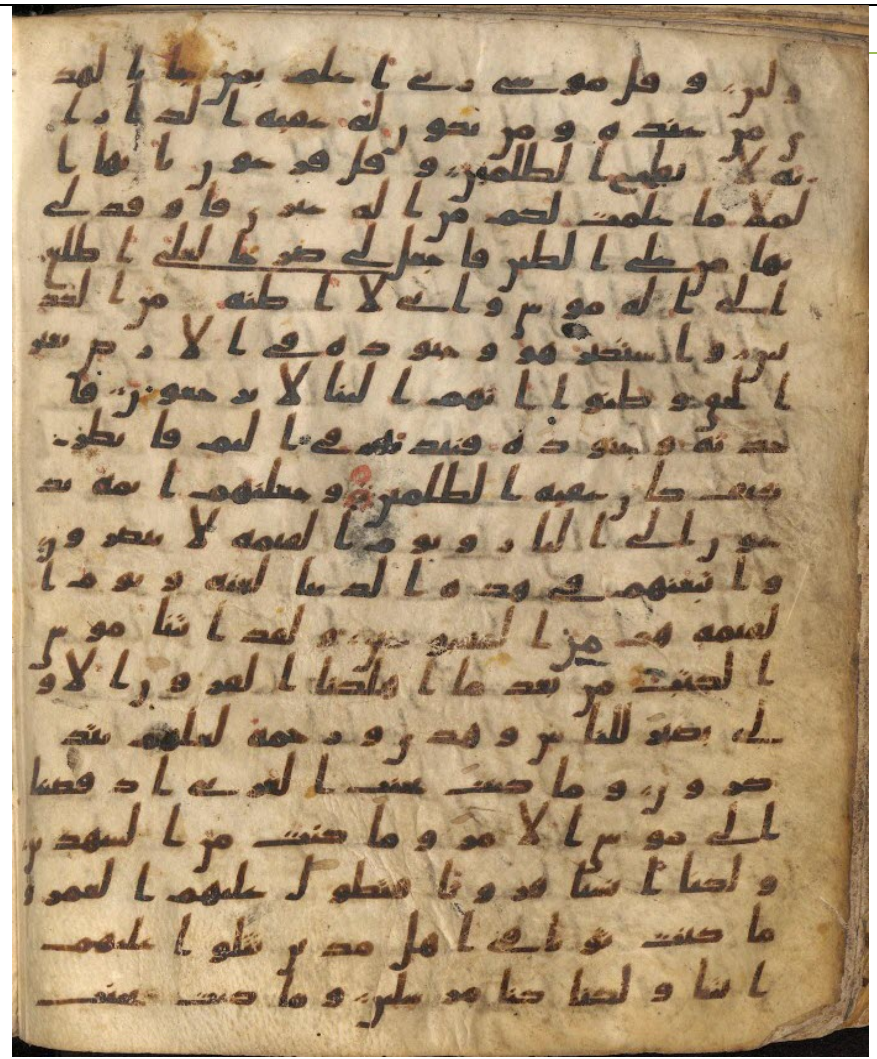 ولين وقل موسى ربى اعلم بمن جا بالهد
ى من عنده ومن تكون له عقبه الدار ا
نه لا يفلح الظلمون وقل فرعون يايها ا
لملا ما علمت لكم من اله غيرى فاوقد لى
يهمن على الطين فاجعل لى صرحا لعلى اطلع
الى اله موسى وانى لاظنه من الكذ
بين واستكبر هو وجنوده فى الارض بغير
الحق وظنوا انهم الينا لا يرجعون فا
خذنه وجنوده فنبذنهم فى اليم فانظر
كيف كان عقبه الظلمين وجعلنهم ايمه يد
عون الى النار ويوم القيمه لا ينصرون
واتبعنهم فى هذه الدنيا لعنه ويوم ا
لقيمه هم من المقبوحين ولقد اتينا موسى
الكتب من بعد ما اهلكنا القرون الاو
لى بصير للناس وهدى ورحمه لعلهم يتذ
كرون وما كنت بجنب الغربى اذ قضينا
الى موسى الامر وما كنت من الشهدين
ولكنا انشانا قرونا فتطول عليهم العمر و
ما كنت ثويا فى اهل مدين تتلوا عليهم
ايتنا ولكنا كنا مرسلين وما كنت بجنب